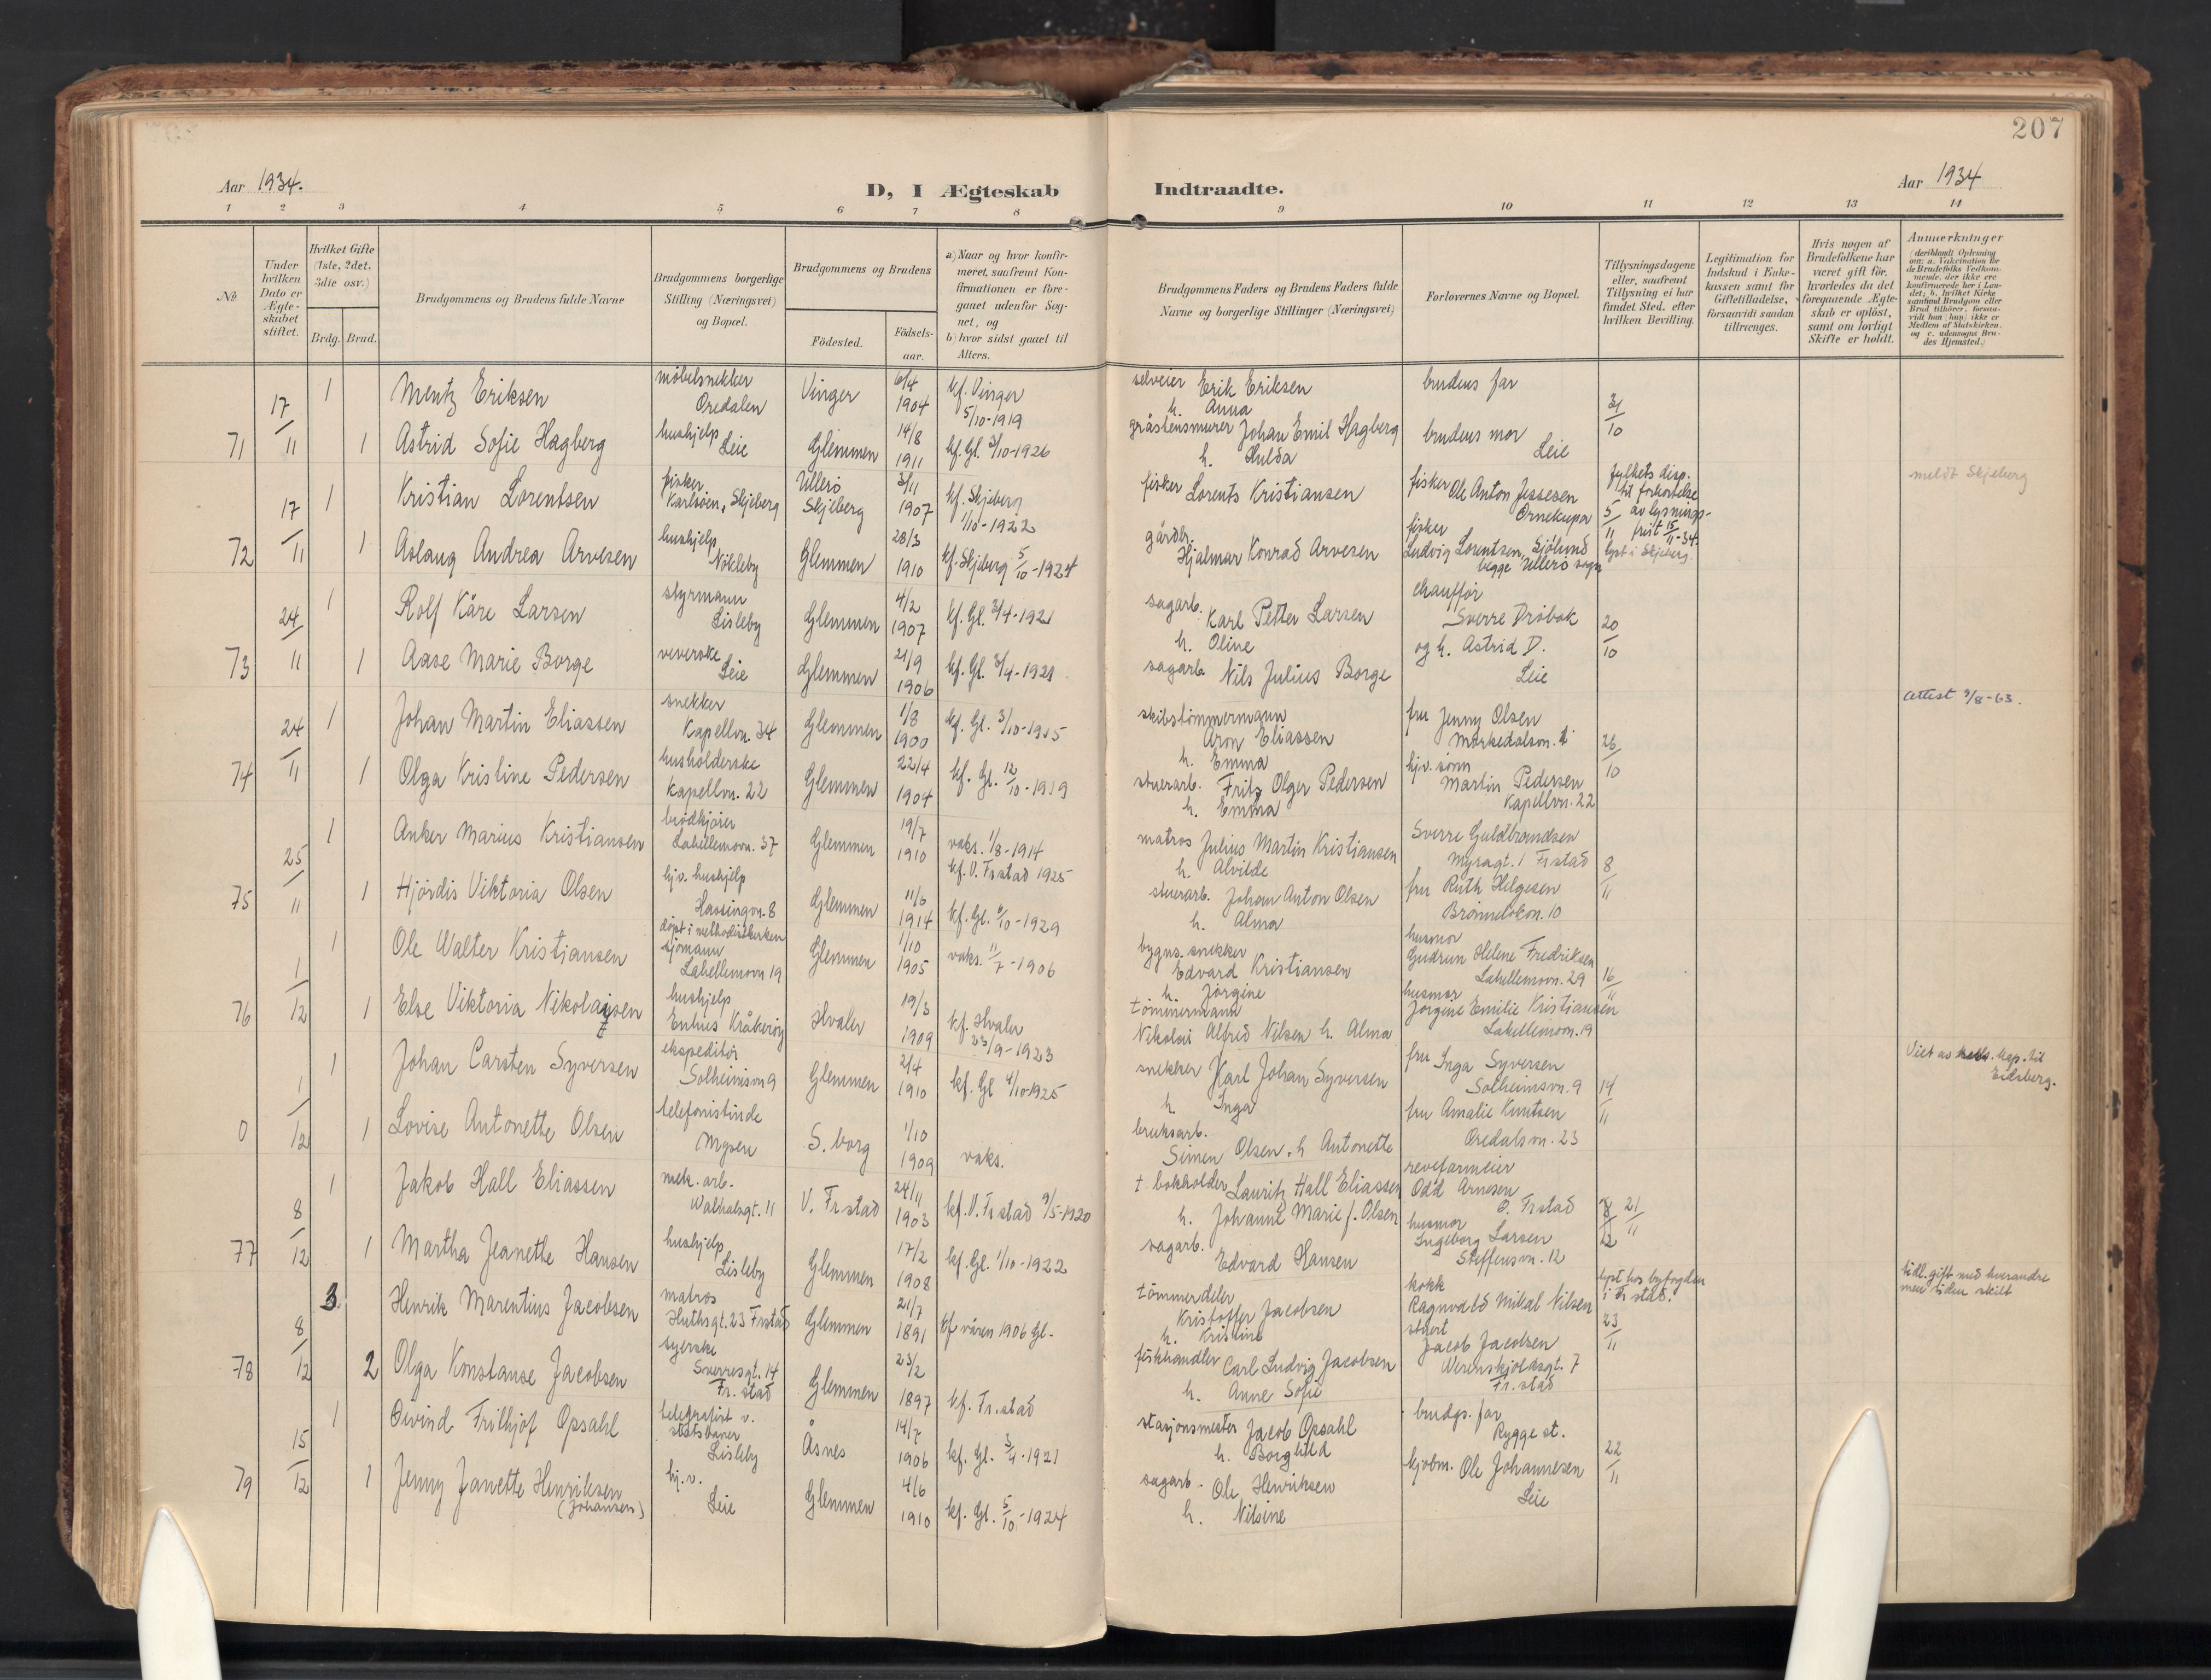 207
Aar 1934.
D, I Ægteskab Indtraadte.
Aar 1934
1 2 3 4 5 6 7 8 9 10 11 12 13 14
No.
Under hvilken Dato er Ægteskabet stiftet.
Hvilket Gifte (1ste, 2det, 3die osv.)
Brdg. Brud.
Brudgommens og Brudens fulde Navne
Brudgommens borgerlige Stilling (Næringsvei) og Bopæl.
Brudgommens og Brudens
Födested.
Födselsaar.
a) Naar og hvor konfirmeret, saafremt Konfirmationen er foregaaet udenfor Sognet, og
b) hvor sidst gaaet til Alters.
Brudgommens Faders og Brudens Faders fulde Navne og borgerlige Stillinger (Næringsvei)
Forlovernes Navne og Bopæl.
Tillysningsdagene eller, saafremt Tillysning ei har fundet Sted, efter hvilken Bevilling.
Legitimation for Indskud i Enkekassen samt for Giftetilladelse, forsaavidt saadan tiltrænges.
Hvis nogen af Brudefolkene har været gift för, hvorledes da det foregaaende Ægteskab er oplöst, samt om lovligt Skifte er holdt.
Anmærkninger (deriblandt Oplysning om: a. Vakcination for de Brudefolks Vedkommende, der ikke ere konfirmerede her i Landet; b. hvilket Kirke samfund Brudgom eller Brud tilhörer, forsaavidt han (hun) ikke er Medlem af Statskirken, og c. udensogns Brudes Hjemsted.)
17/11 1 Mentz Eriksen møbelsnekker Oredalen Vinger 6/4 1904 kf. Vinger 5/10-1919 selveier Erik Eriksen h. Anna brudens far 31/10
71 1 Astrid Sofie Hagberg hushjelp Leie Glemmen 14/8 1911 kf. Gl. 3/10-1926 gråstensmurer Johan Emil Hagberg h. Hulda brudens mor Leie
17/11 1 Kristian Lorentsen fisker Karlsøen, Skjeberg Ullerö Skjeberg 3/11 1907 kf. Skjeberg 1/10-1922 fisker Lorents Kristiansen fisker Ole Anton Jessesen Ørnekupa fylkets disp. til forkortelse av lysningsfrist 15/11-34. 5/11 meldt Skjeberg
72 1 Aslaug Andrea Arvesen hushjelp Nökleby Glemmen 28/3 1910 kf. Skjeberg 5/10-1924 gårdbr. Hjalmar Konrad Arvesen fisker Ludvig Lorentsen, Sjölund begge Ullerö sogn lyst i Skjeberg
24/11 1 Rolf Kåre Larsen styrmann Lisleby Glemmen 4/2 1907 kf. Gl. 3/4-1921 sagarb. Karl Petter Larsen h. Oline chauffør Sverre Dröbak 20/10
73 1 Aase Marie Borge veverske Leie Glemmen 21/9 1906 kf. Gl. 3/4-1921 sagarb. Nils Julius Borge og h. Astrid D. Leie
24/11 1 Johan Martin Eliassen snekker Kapellvn. 34 Glemmen 1/8 1900 kf. Gl. 3/10-1915 skibstömmermann Aron Eliassen h. Emma fru Jenny Olsen 26/10 Attest 9/8-63.
74 1 Olga Kristine Pedersen husholderske Kapellvn. 22 Glemmen 22/4 1904 kf. Gl. 12/10-1919 stuerarb. Fritz Olger Pedersen h. Emma hjv. sönn Martin Pedersen Kapellvn. 22
25/11 1 Anker Marius Kristiansen brödkjörer Labellemovn. 37 Glemmen 19/7 1910 vaks. 1/8-1914 kf. V. Frstad 1925 matros Julius Martin Kristiansen h. Alvilde Sverre Guldbrandsen Myragt. 1 Frstad 8/11
75 1 Hjördis Viktoria Olsen hjv. hushjelp Hassingvn. 8 Glemmen 11/6 1914 kf. Gl. 6/10-1929 stuerarb. Johan Anton Olsen h. Alma fru Ruth Helgesen
1/12 1 Ole Walter Kristiansen döpt i methodistkirken sjömann Labellemovn 19 Glemmen 1/10 1905 vaks. 11/7-1906 bygns. snekker Edvard Kristiansen h. Jörgine husmor Gudrun Helene Fredriksen Labellemovn. 29 16/11
76 1 Else Viktoria Nikolaysen hushjelp Enhus Kråkeröy Hvaler 19/3 1909 kf. Hvaler 23/9-1923 tömmermann Nikolai Alfred Nilsen h. Alma husmor Jörgine Emilie Kristiansen Labellemovn. 19
1/12 1 Johan Carsten Syversen ekspeditör Solheimsvn 9 Glemmen 2/4 1910 kf. Gl 4/10-1925 snekker Karl Johan Syversen h. Inga fru Inga Syversen Solheimsvn. 9 14/11 Viet av kap. til Eidsberg.
0 1 Lovise Antonette Olsen telefonistinde Mysen S. borg 1/10 1909 vaks. bruksarb. Simen Olsen. h Antonette fru Amalie Knutsen Oredalsvn. 23
8/12 1 Jakob Hall Eliassen mek. arb. Walhalsgt. 11 V. Frstad 24/11 1903 kf. V. Frstad 9/5-1920 t bokholder Lauritz Hall Eliassen h. Johanne Marie f. Olsen revefarmeier Odd Arnesen Ö. Frstad 21/11
77 1 Martha Jeanette Hansen hushjelp Lisleby Glemmen 17/2 1908 kf. Gl. 1/10-1922 sagarb. Edvard Hansen husmor Ingeborg Larsen Steffensvn. 12
8/12 3 Henrik Marentius Jacobsen matros Huthsgt. 23 Frstad Glemmen 21/7 1891 kf våren 1906 Gl. tömmerdeler Kristoffer Jacobsen h. Kristine kokk Ragnvald Mikal Nilsen lyst hos byfogden i Fr stad. 23/11 tidl. gift med hverandre men siden skilt
78 2 Olga Konstanse Jacobsen syerske Sverresgt. 14 Fr. stad Glemmen 23/2 1897 kf. Fr. stad fiskhandler Carl Ludvig Jacobsen h. Anne Sofie stuert Jacob Jacobsen Werenskjoldsgt. 7 Fr. stad
15/12 1 Öivind Frithjof Opsahl telegrafist v. statsbaner Lisleby Åsnes 14/7 1906 kf. Gl. 3/4-1921 stasjonsmester Jacob Opsahl h. Borghild brudgs. far Rygge st. 22/11
79 1 Jenny Janette Henriksen (Johansen) hj. v. Leie Glemmen 4/6 1910 kf. Gl. 5/10-1924 sagarb. Ole Henriksen h. Nilsine kjøbm. Ole Johannesen Leie